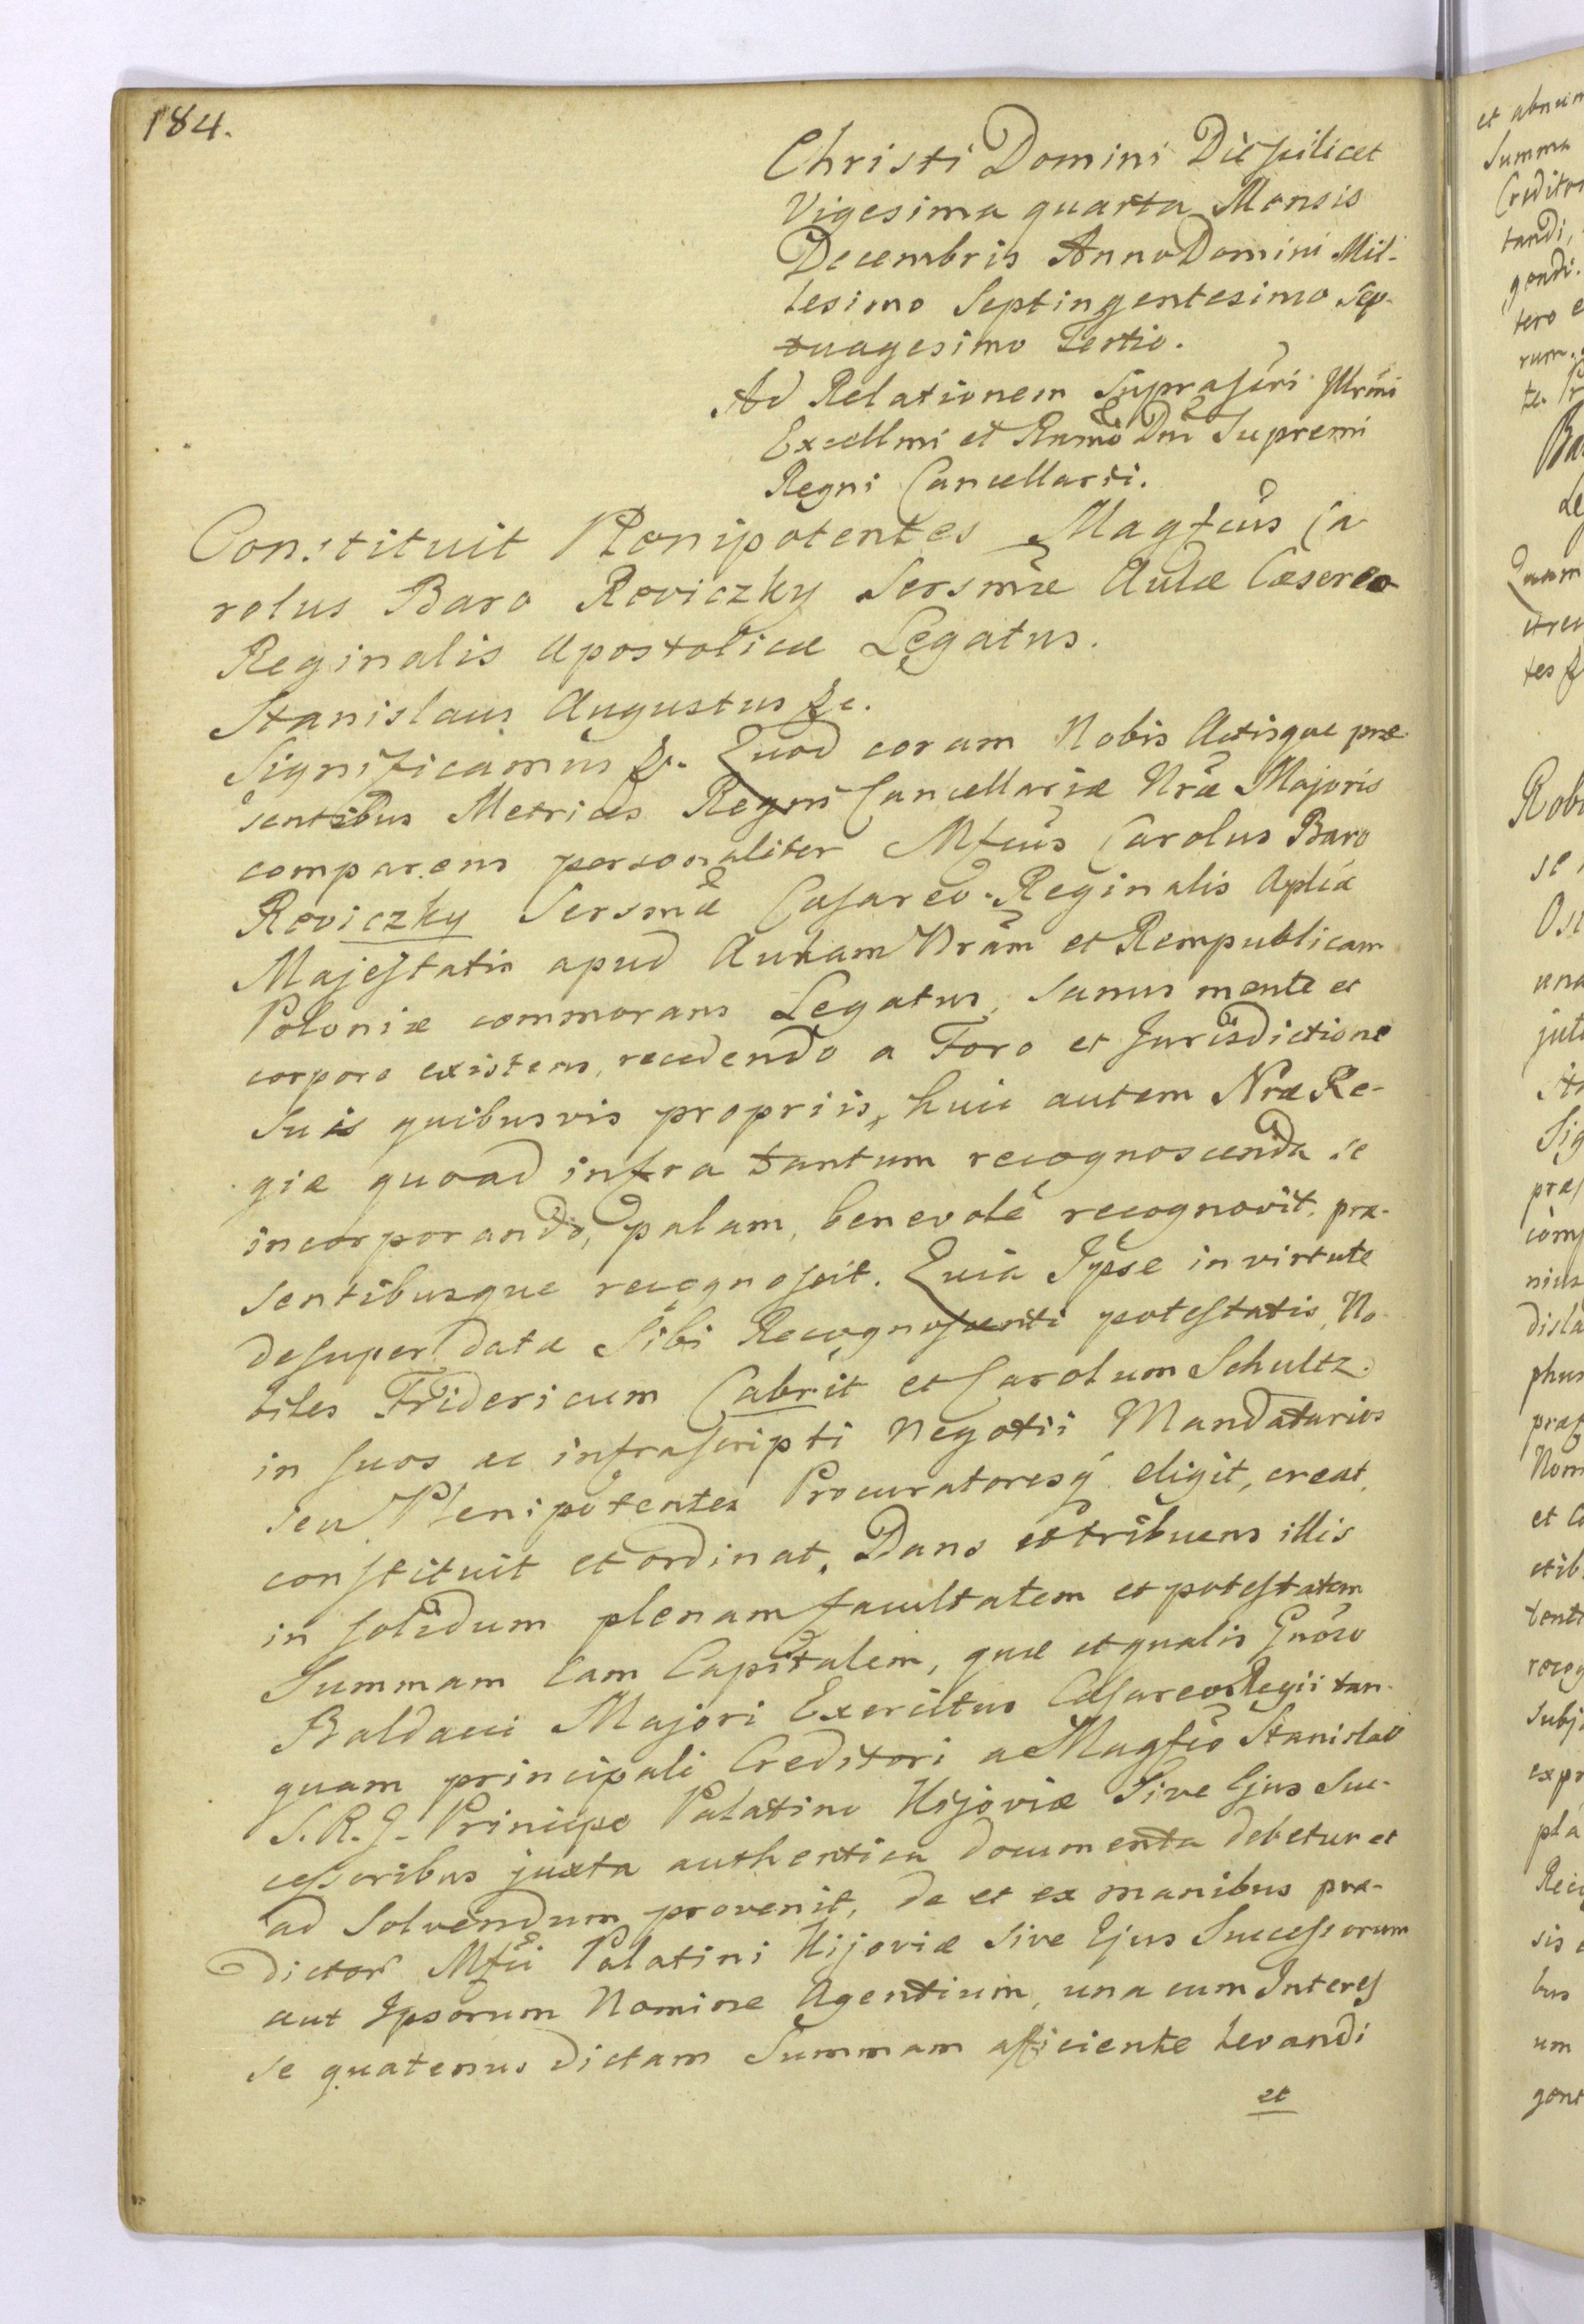 184.
Christi Domini Die scilicet
Vigesima quarta Mensis
Decembris Anno Domini Mil-
lesimo Septingentesimo Sep-
tuagesimo Tertio.
Ad Relationem Suprascri Illrmi
Excellmi et Rnmo Dni Supremi
Regni Cancellarii.
Constituit Plenipotentes Magfcus Ca
rolus Baro Reviczky Sersmæ Aulæ Cæsereo
Reginalis Apostolicæ Legatus.
Stanislaus Augustus &c.
Significamus &c. Quod coram Nobis Actisque præ
sentibus Metrices Regni Cancellariæ Nræ Majoris
comparens personaliter Mfcus Carolus Baro
Reviczky Sersmæ Cæsareo-Reginalis Aplicæ
Majestatis apud Aulam Nram et Rempublicam
Poloniæ commorans Legatus, sanus mente et
corpore existens, recedendo a Foro et Jurisdictione
suis quibusvis propriis, huic autem Nræ Re-
giæ quoad infra tantum recognoscenda se
incorporando, palam, benevolé recognovit, præ-
sentibusque recognoscit. Quia Ipse in virtute
desuper datæ Sibi Recognoscenti potestatis, No-
biles Fridericum Cabrit et Carolum Schultz
in suos ac infrascripti Negotii Mandatarios
seu Plenipotentes Procuratoresq́ eligit, creat,
constituit et ordinat, Dans et tribuens illis
in solidum plenam facultatem et potestatem
Summam Eam Capitalem, quæ et qualis Gnoso
Baldacci Majori Exercitus Cæsareo Regii tan-
quam principali Creditori a Magfco Stanislao
S. R. J. Principe Palatino Kijoviæ Sive Ejus Suc-
cessoribus juxta authentica documenta debetur et
ad Solvendum provenit, de et ex manibus præ-
dictor Mfci Palatini Kijoviæ sive Ejus Successorum
aut Ipsorum Nomine Agentium, una cum Interes
se quatenus dictam Summam afficiente levandi
et